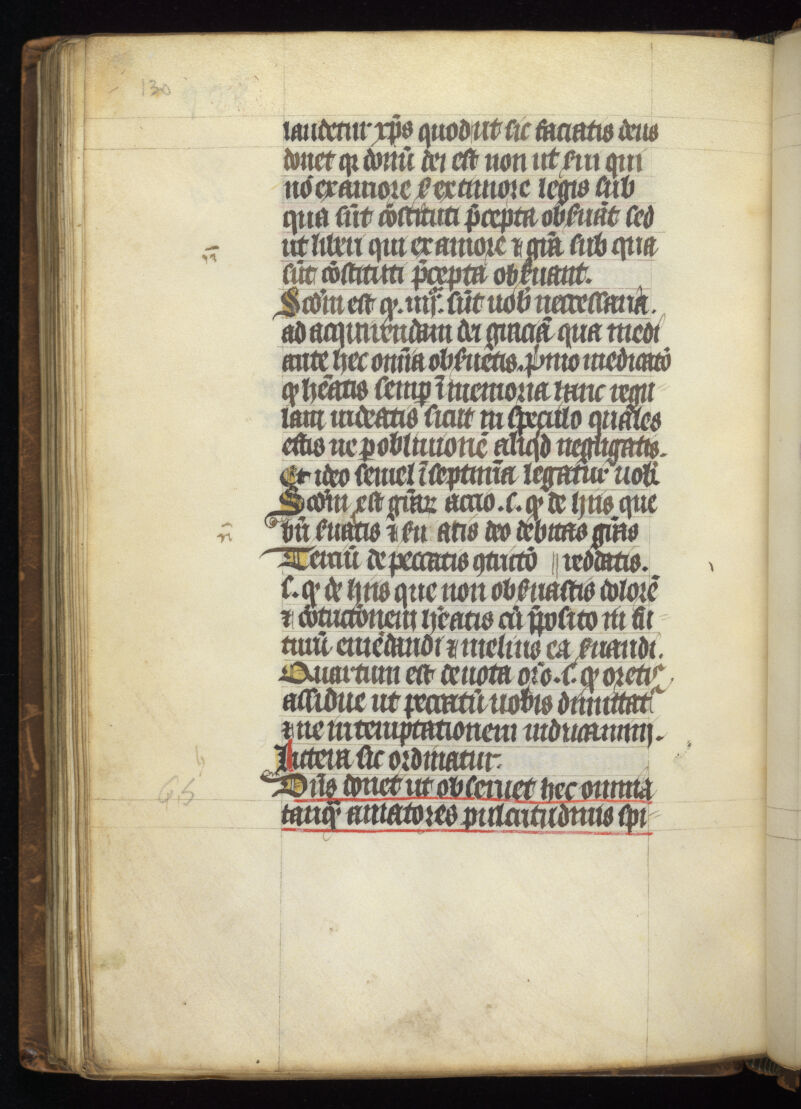 130
laudetur xp̄s quod ut sic faciatis deus
donet qꝛ donū dei est non ut ẜui qui
nō ex amore ẜ ex timore legis sub
qua sūt ꝯ̄stituti p̄cepta obẜuāt sed
ut liberi qui ex amore ⁊ grā sub qua
sūt ꝯ̄stituti p̄cepta obẜuant.
Scdm̄ est qꝫ .iiijᵒʳ. sūt uob̄ necessaria.
ad acquirendam dei graciā qua medi
ante hec om̄ia obẜuetis. p̄mo
qꝫ hēatis semp̄ ī memoria hanc regu
lam uideatis sicut in speculo quales
estis ne ꝑ obliuionē aliqd̄ negligatis.
Et ideo semel ī septim̄a legatur uob̄
Scdm̄ est grāꝝ actio .s. qꝫ de hiis que
bn̄ ẜuatis ⁊ ẜuatis deo debitas grās
Terciū de peccatis ꝯtrictō || reddatis.
s. qꝫ de hiis que non obẜuastis dolorē
⁊ cōtrictōnem hēatis cū p̄posito in fu
turū emēdandi ⁊ melius ea ẜuandi.
Quartum est deuota orō .s. qꝫ oretis
assidue ut peccatū uobis dimittat
⁊ ne in temptationem inducamini.
Littera sic ordinatur.
Dn̄s donet ut obseruet hec omnia
tanqꝫ amatores pulcritudinis spi
65